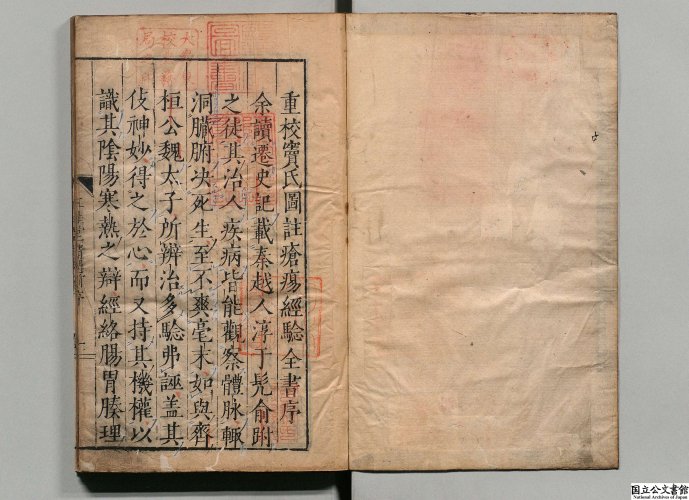 重校竇氏圖註瘡瘍經驗全書序
余讀遷史記載秦越人淳于髡俞跗
之徒其治人疾病皆能觀察體脉輙
洞臟腑决死生至不爽毫末如與齊
桓公魏太子所辨治多驗弗誣盖其
伎神妙得之於心而又持其機權以
識其陰陽寒熱之辯經絡腸胃腠理
国立公文書館
National Archives of Japan